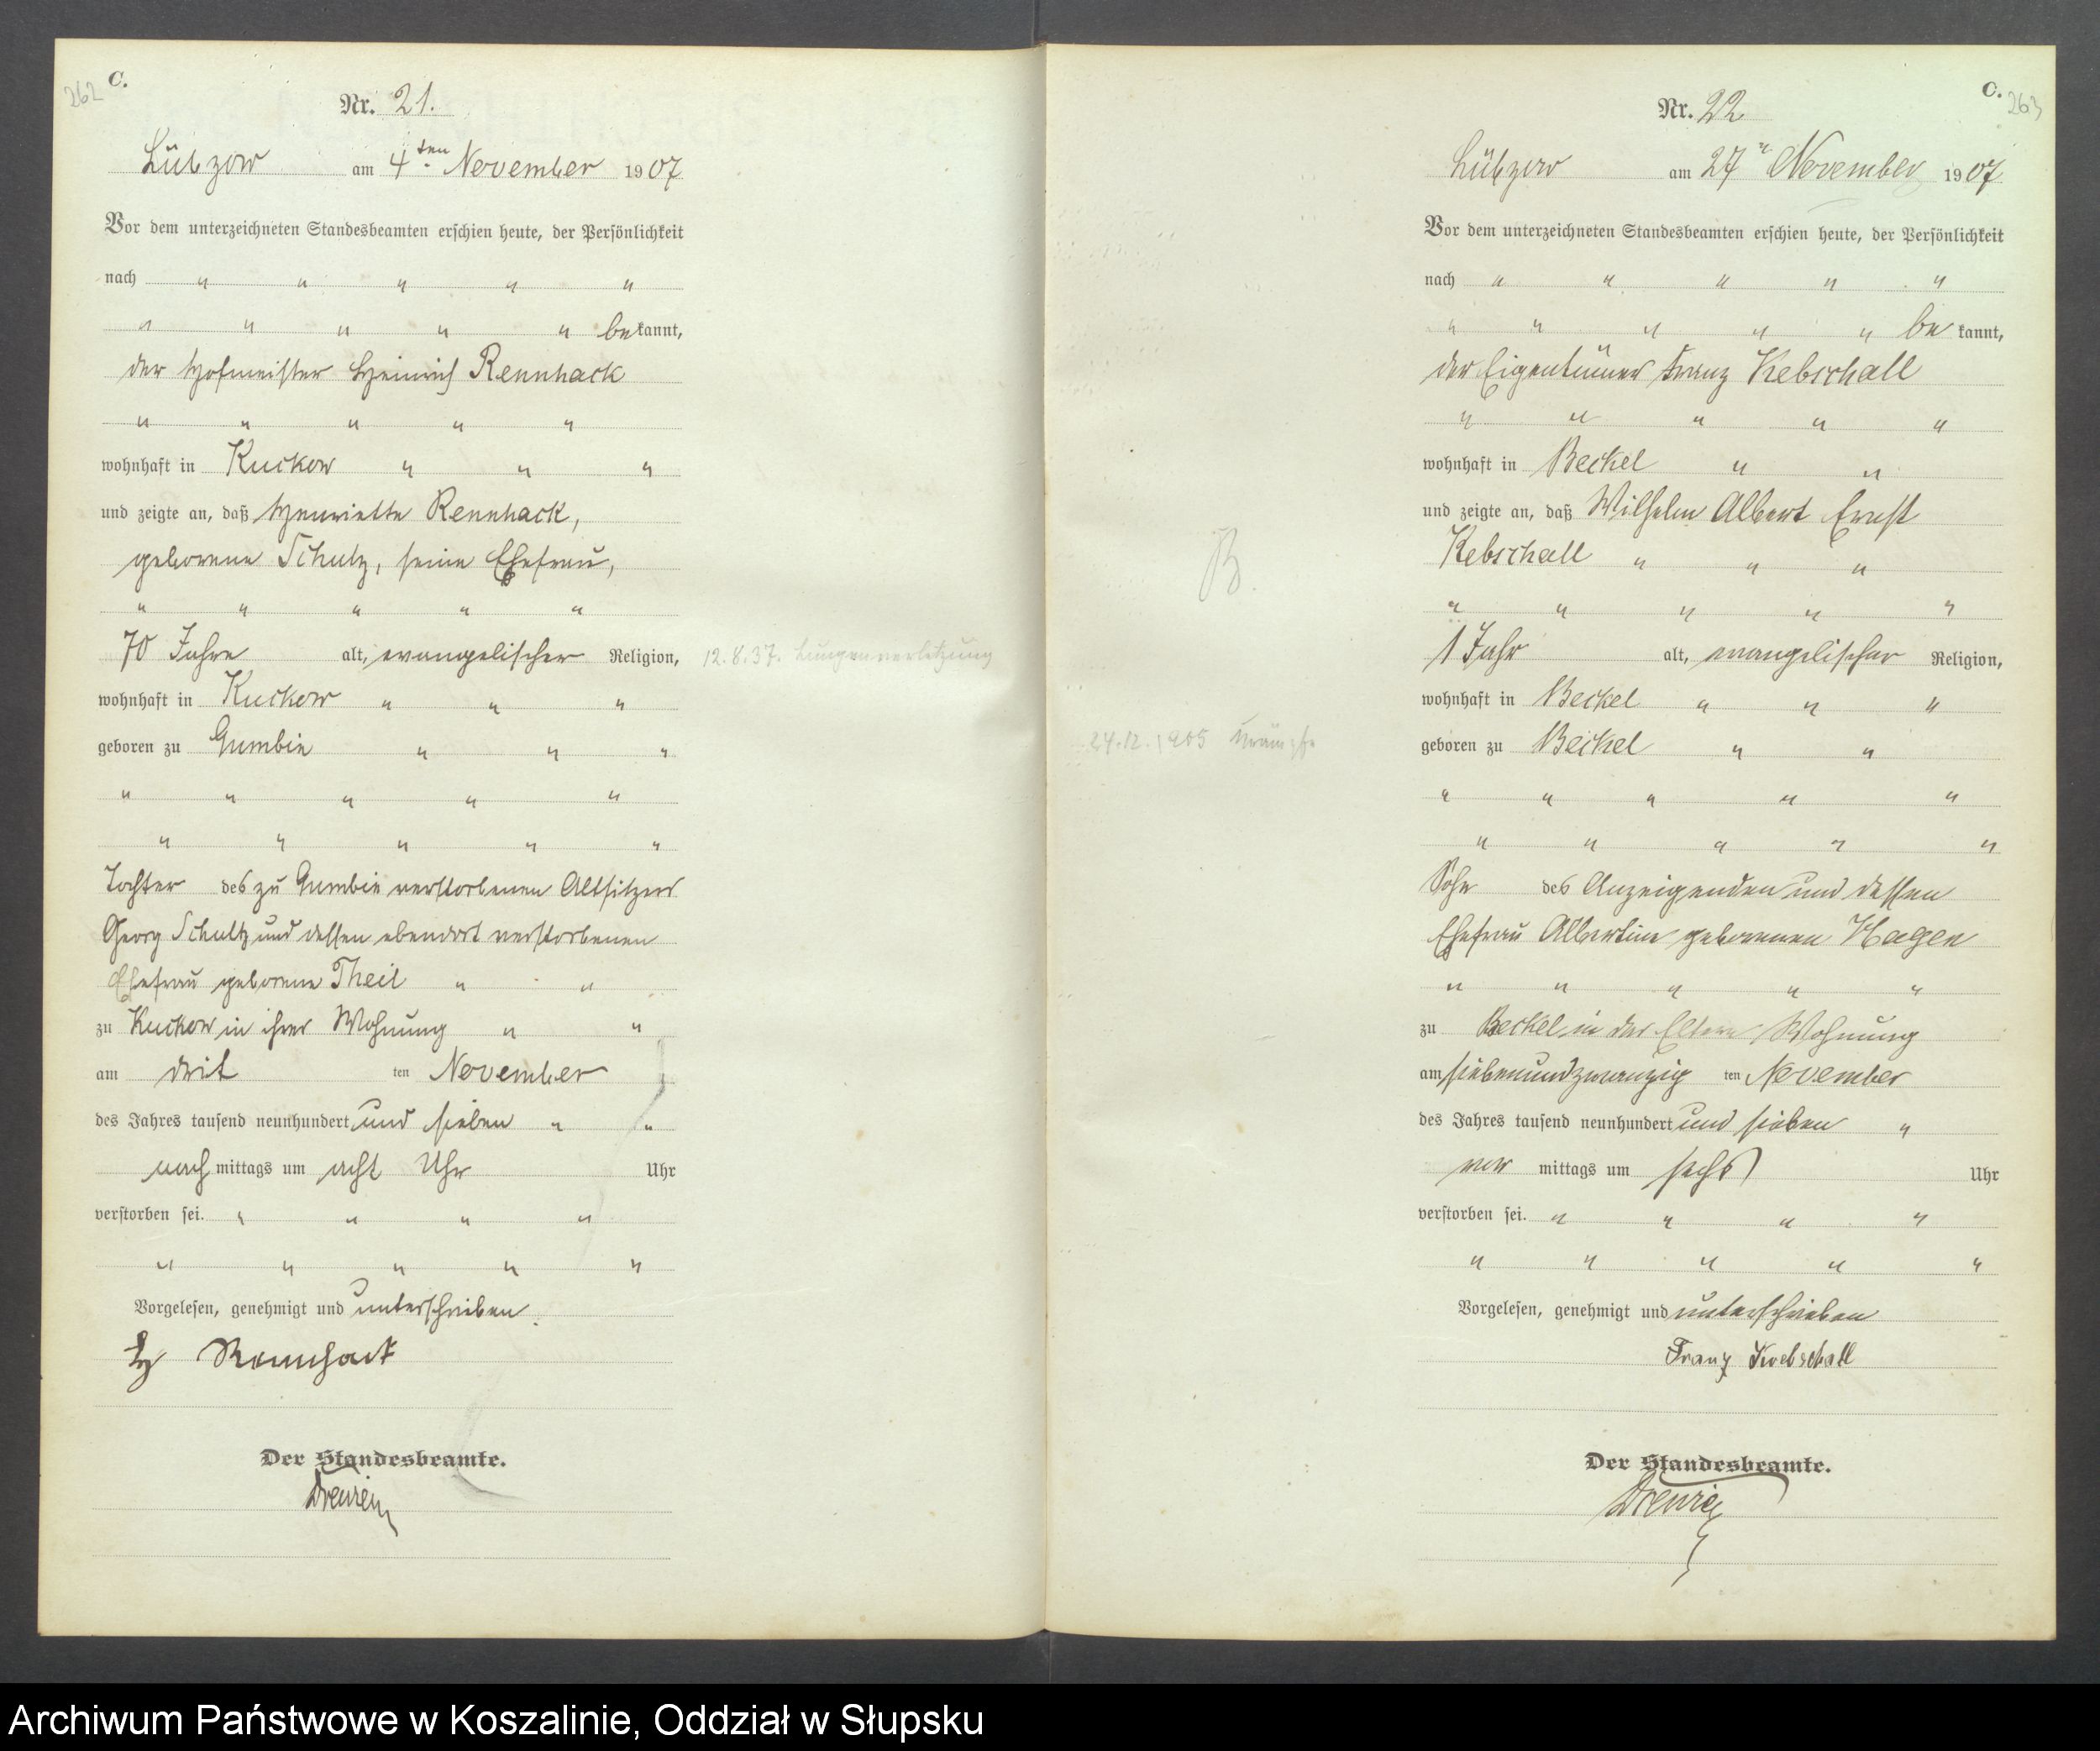 262 C.
Nr. 21.
Lübzow am 4ten November 1907
Vor dem unterzeichneten Standesbeamten erschien heute, der Persönlichkeit
nach " " " " "
" " " " " bekannt,
der Hofmeister Heinrich Rennhack
" " " " "
wohnhaft in Kuckow " " "
und zeigte an, daß Henriette Rennhack,
geborene Schulz, seine Ehefrau,
" " " " "
70 Jahre alt, evangelischer Religion,
12.8.37. Lungenverletzung
wohnhaft in Kuckow " " "
geboren zu Gumbin " " "
" " " " "
" " " " "
Tochter des zu Gumbin verstorbenen Altsitzers
Georg Schultz und dessen ebendort verstorbenen
Ehefrau geborene Theil " "
zu Kuckow in ihrer Wohnung " "
am drit ten November
des Jahres tausend neunhundert und sieben " "
nach mittags um acht Uhr Uhr
verstorben sei. " " " "
" " " " "
Vorgelesen, genehmigt und unterschrieben.
H Rennhack
Der Standesbeamte.
C. 263
Nr. 22
Lübzow am 27n November 1907
Vor dem unterzeichneten Standesbeamten erschien heute, der Persönlichkeit
nach " " " " "
" " " " " be kannt,
der Eigentümer Franz Kebschall
" " " " "
wohnhaft in Beckel " "
und zeigte an, daß Wilhelm Albert Ernst
Kebschall " " "
B.
" " " " "
1 Jahr alt, evangelischer Religion,
wohnhaft in Beckel " " "
24.12.1905 Krämpfe
geboren zu Beckel " "
" " " " "
" " " " "
Sohn des Anzeigenden und dessen
Ehefrau Albertine geborenen Hagen
" " " " "
zu Beckel in der Eltern Wohnung
am siebenundzwanzig ten November
des Jahres tausend neunhundert und sieben "
vor mittags um sechs Uhr
verstorben sei. " " " "
" " " " "
Vorgelesen, genehmigt und unterschrieben
Franz Kebschall
Der Standesbeamte.
Archiwum Państwowe w Koszalinie, Oddział w Słupsku